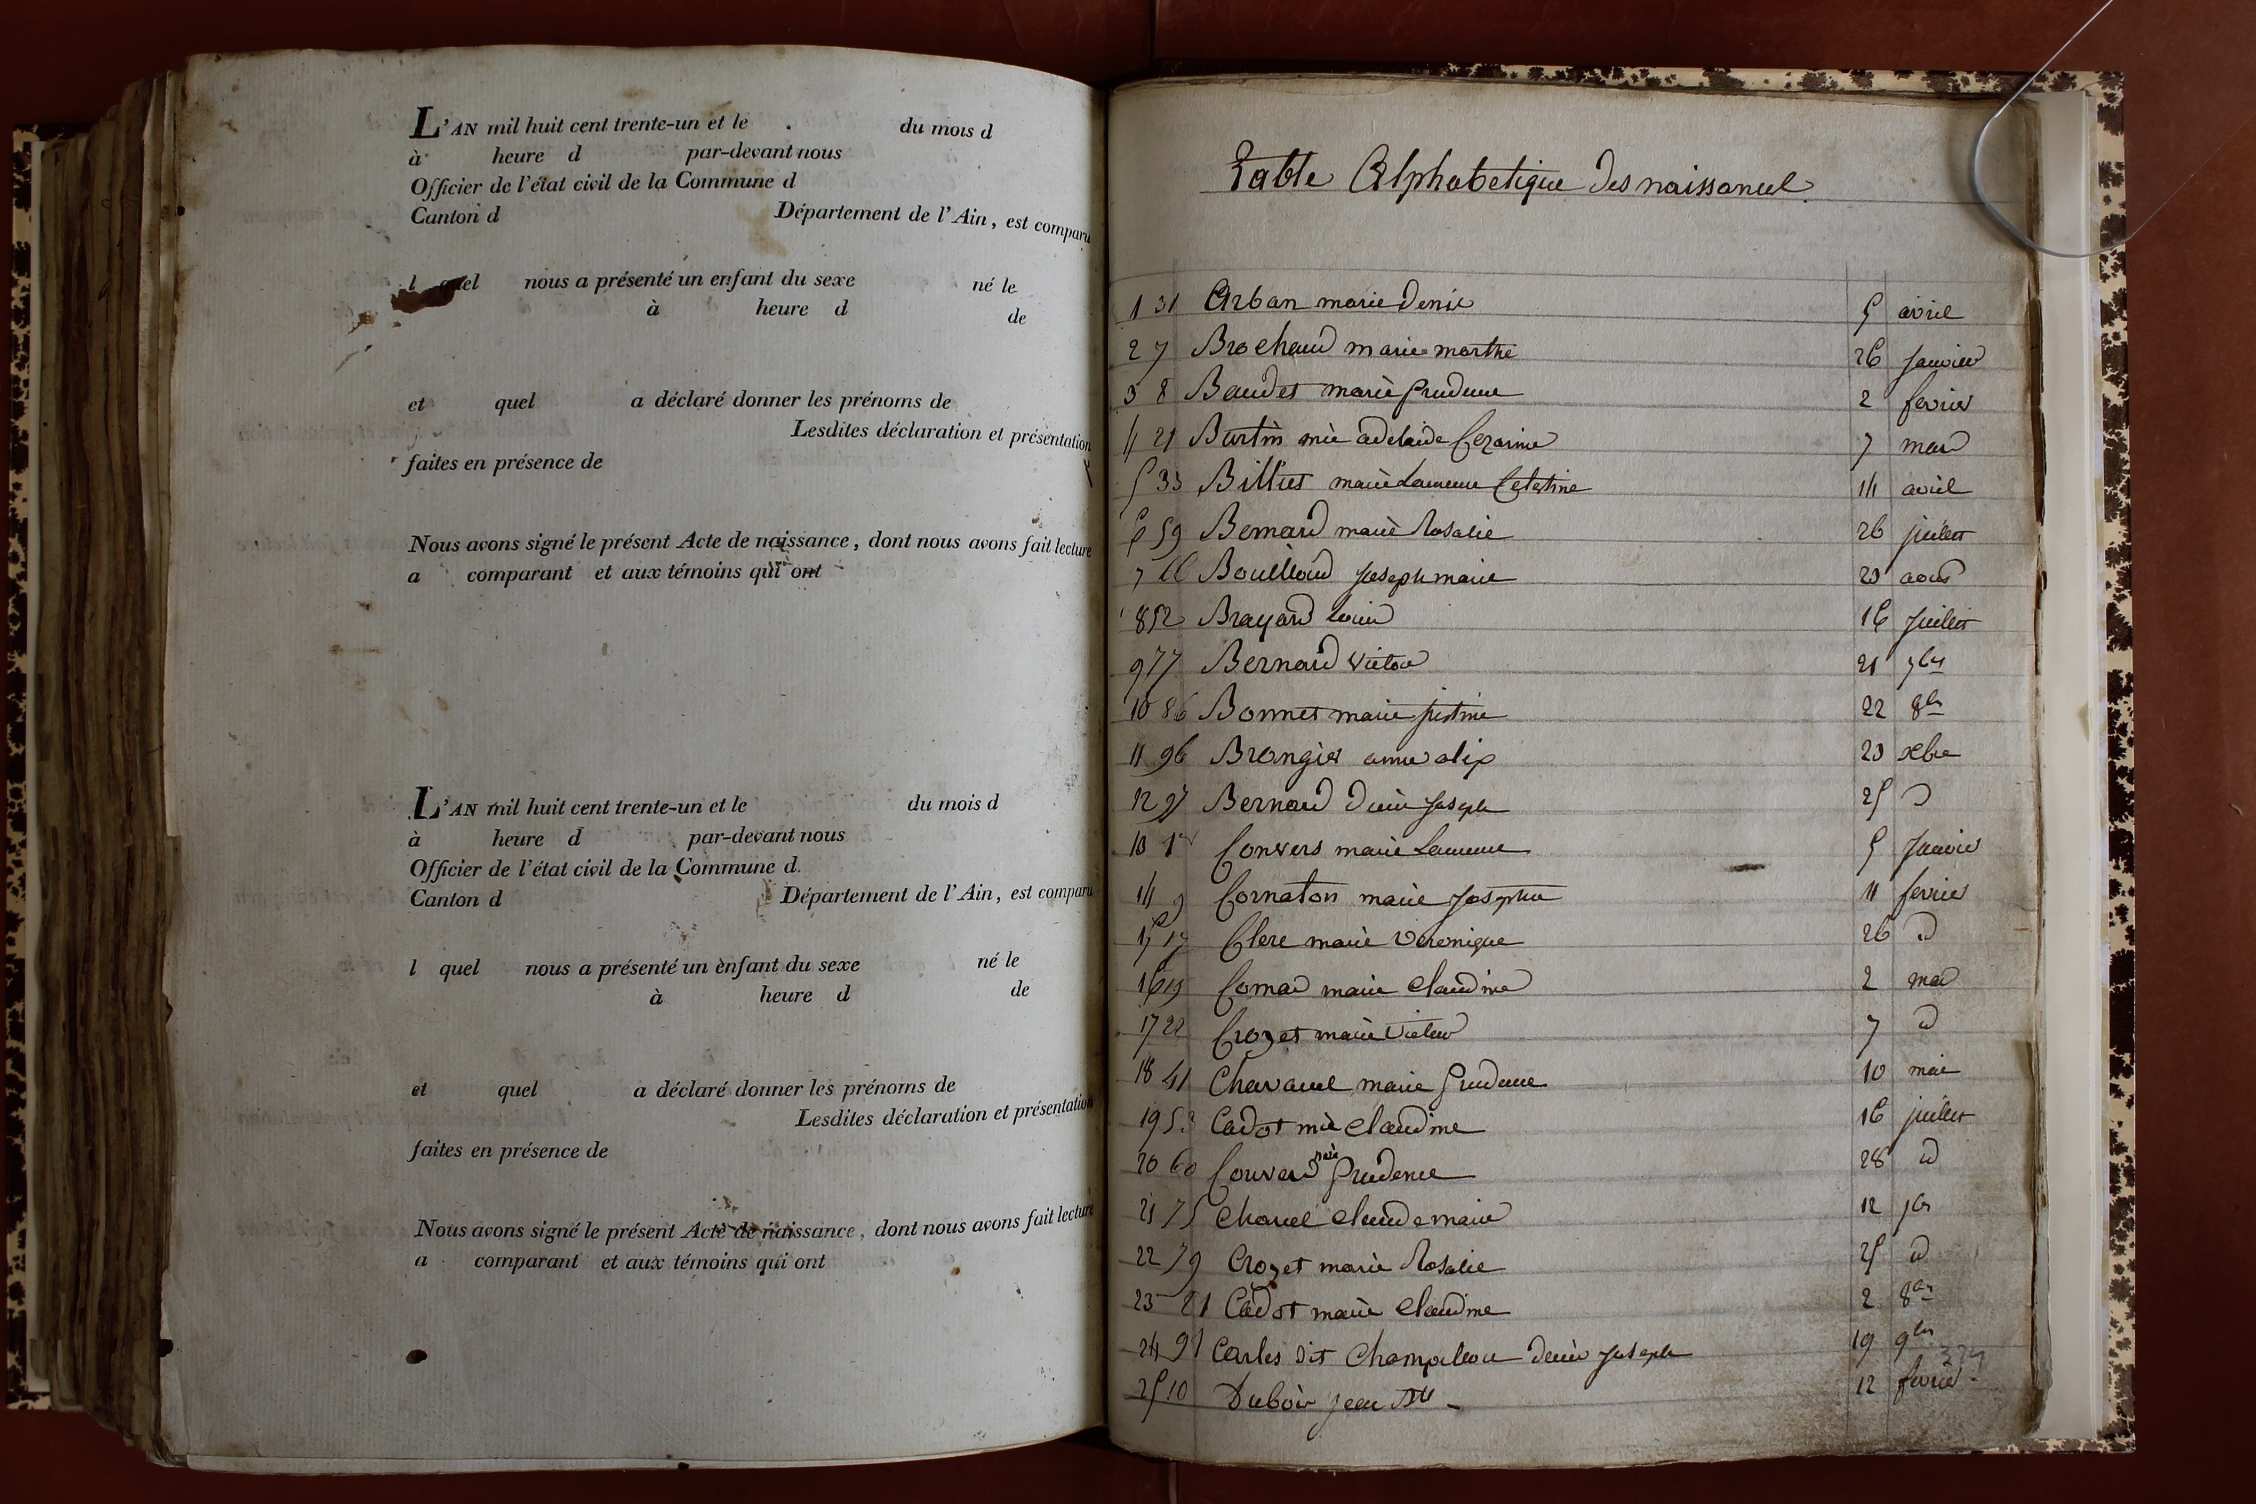 L'AN mil huit cent trente-un et le du mois d
à heure d par-devant nous
Officier de l'état civil de la Commune d
Canton d Département de l'Ain, est comparu
l quel nous a présenté un enfant du sexe né le
à heure d de
et quel a déclaré donner les prénoms de
Lesdites déclaration et présentation
faites en présence de
Nous avons signé le présent Acte de naissance, dont nous avons fait lecture
a comparant et aux témoins qui ont
L'AN mil huit cent trente-un et le du mois d
à heure d par-devant nous
Officier de l'état civil de la Commune d
Canton d Département de l'Ain, est comparu
l quel nous a présenté un enfant du sexe né le
à heure d de
et quel a déclaré donner les prénoms de
Lesdites déclaration et présentation
faites en présence de
Nous avons signé le présent Acte de naissance, dont nous avons fait lecture
a comparant et aux témoins qui ont
Table Alphabetique des naissances
1 31 Arban marie Denise 5 avril
2 7 Brochaud marie marthe 26 Janvier
3 8 Baudet marie prudence 2 fevrier
4 21 Burtin mie adelaide Cezarine 7 mars
5 33 Billiet marie Laurence Celestine 14 avril
6 59 Bernard marie Rosalie 26 juillet
7 66 Bouilloud Joseph marie 23 aout
8 52 Brayard Louis 16 Juillet
9 77 Bernard Victor 21 7bre
10 86 Bonnet marie justine 22 8bre
11 96 Brangier anne alix 23 xbre
12 97 Bernard Denis Joseph 25 d
13 1er Convers marie Laurence 5 Janvier
14 9 Cornaton marie Josephte 11 fevrier
15 17 Clere marie Veronique 26 id
16 19 Comas marie Claudine 2 mars
17 22 Crozet marie Victoire 7 id
18 41 Chavanel marie Prudence 10 mai
19 53 Cadot mie Claudine 16 juillet
20 60 Convers marie Prudence 28 id
21 75 Charvel Claude marie 12 7bre
22 79 Crozet marie Rosalie 25 id
23 81 Cadot marie Claudine 2 8bre
24 91 Carles dit Champillon Denis Joseph 19 9bre
25 10 Dubois Jean Bte 12 fevrier